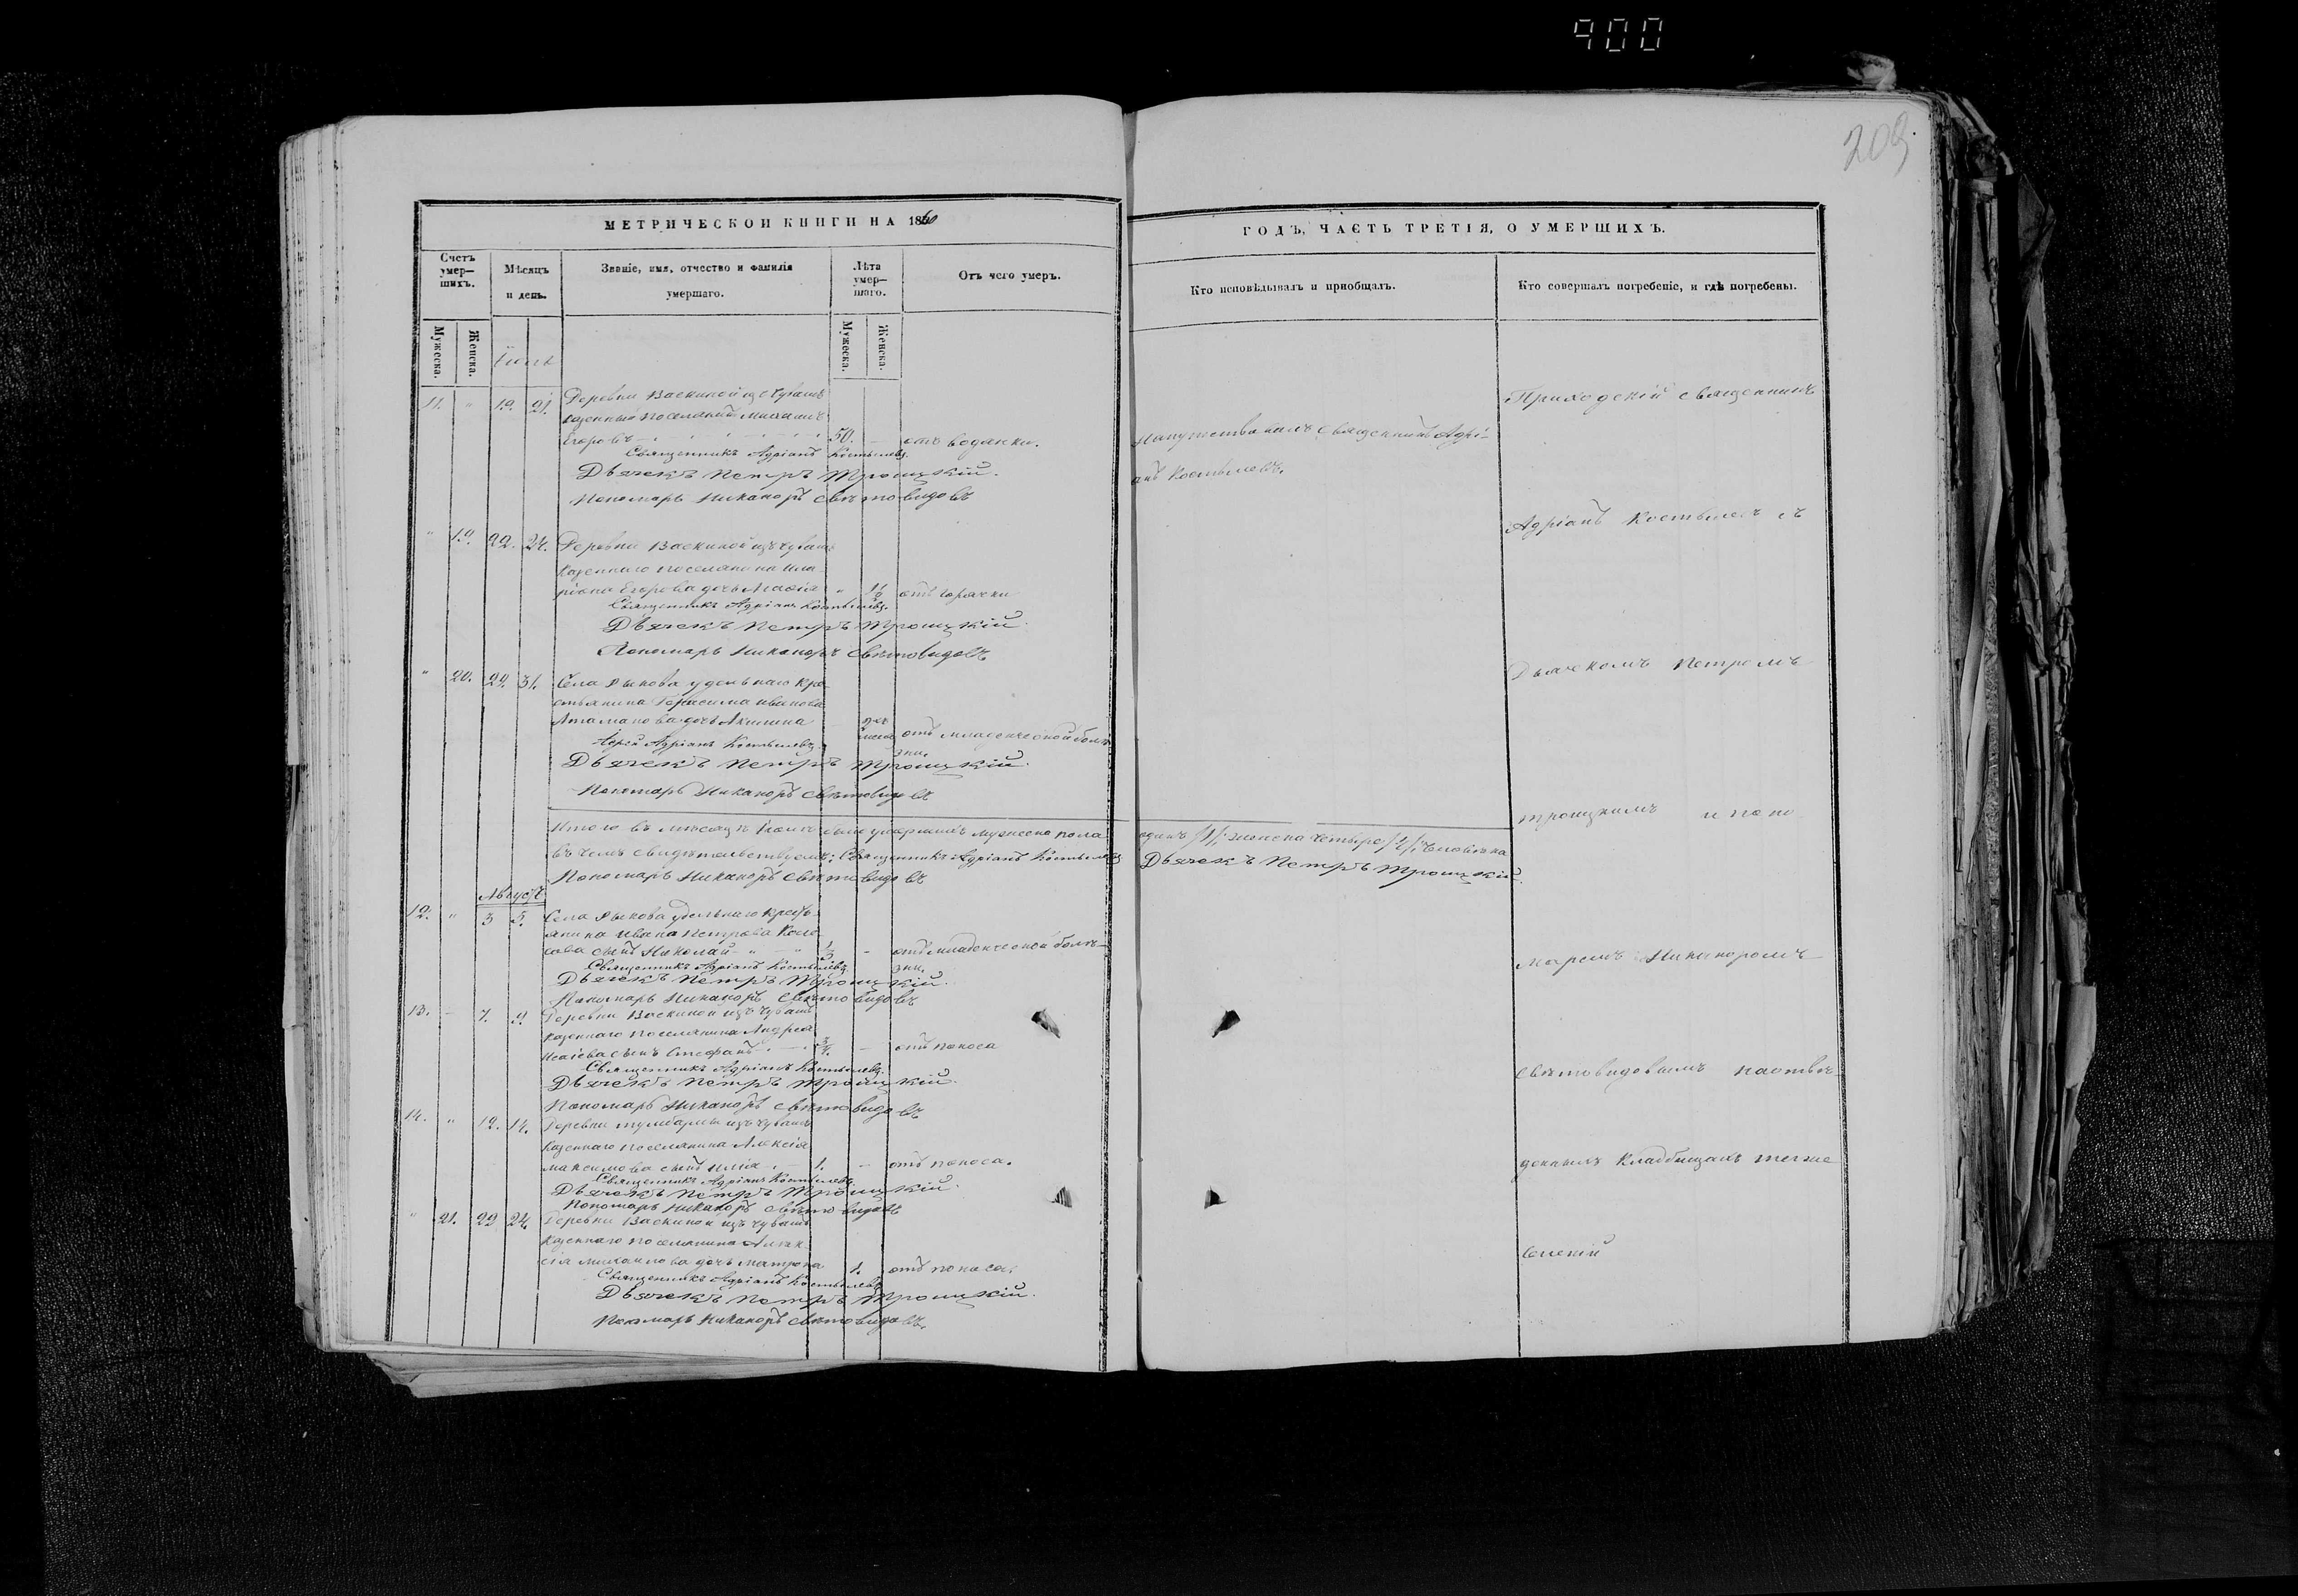 900
209
МЕТРИЧЕСКОЙ КНИГИ НА 1860
Счетъ умер—шихъ.
Мѣсяцъ и день.
Званіе, имя, отчество и фамилія умершаго.
Лѣта умер—шаго.
Отъ чего умеръ.
Мужеска.
Женска.
Мужеска.
Женска.
Іюль
11. " 19. 21. Деревни Васкиной изъ Чувашъ
казенный поселянинъ Михаилъ
Егоровъ 50. — отъ водянки.
Священникъ Адріанъ Костылевъ.
Дьячекъ Петръ Троицкій.
Пономарь Никаноръ Свѣтовидовъ
" 19. 22. 24. Деревни Васкиной изъ чувашъ
казеннаго поселянина Ила
ріона Егорова дочь "
отъ горячки
Священникъ Адріанъ Костылевъ.
Дьячекъ Петръ Троицкій.
Пономарь Никаноръ Свѣтовидовъ
" 20. 29. 31. Села Рыкова удѣльнаго кре
стьянина Герасима Иванова
Атаманова дочь Акилина
отъ младенческой болѣ
зни.
Іерей Адріанъ Костылевъ
Дьячекъ Петръ Троицкій.
Пономарь Никаноръ Свѣтовидовъ
Итого въ мѣсяцѣ Іюлѣ было умершихъ мужеска пола
въ чемъ свидѣтельствуемъ: Священникъ Адріанъ Костылевъ
Пономарь Никаноръ Свѣтовидовъ
Августъ
12. " 3 5. Села Рыкова удѣльнаго кресть
янина Ивана Петрова Коло
сова сынъ Николай — отъ младенческой болѣ—
зни.
Священникъ Адріанъ Костылевъ.
Дьячекъ Петръ Троицкій.
Пономарь Никаноръ Свѣтовидовъ
13. — 7. 9. Деревни Васкиной изъ чувашъ
казеннаго поселянина Андрея
Исаіева сынъ Стефанъ 3/4. — отъ поноса
Священникъ Адріанъ Костылевъ.
Дьячекъ Петръ Троицкій.
Пономарь Никаноръ Свѣтовидовъ
14. " 12. 14. Деревни изъ чувашъ
казеннаго поселянина Алексія
Максимова сынъ Илія 1. — отъ поноса.
Священникъ Адріанъ Костылевъ.
Дьячекъ Петръ Троицкій.
Пономарь Никаноръ Свѣтовидовъ
" 21. 22 24. Деревни Васкиной изъ чувашъ
казеннаго поселянина Алек
сія Михаилова дочь Матрона 1. отъ поноса.
Священникъ Адріанъ Костылевъ
Дьячекъ Петръ Троицкій.
Пономарь Никаноръ Свѣтовидовъ.
ГОДЪ, ЧАСТЬ ТРЕТІЯ, О УМЕРШИХЪ.
Кто исповѣдывалъ и пріобщалъ.
Кто совершалъ погребеніе, и гдѣ погребены.
Напутствовалъ священникъ Адрі—
анъ Костылевъ.
одинъ /1/, женска четыре /4/ человѣка
Дьячекъ Петръ Троицкій.
Приходскій священникъ
Адріанъ Костылевъ съ
Дьячкомъ Петромъ
Троицкимъ и поно
маремъ Никаноромъ
Свѣтовидовымъ наотве—
денныхъ кладбищахъ